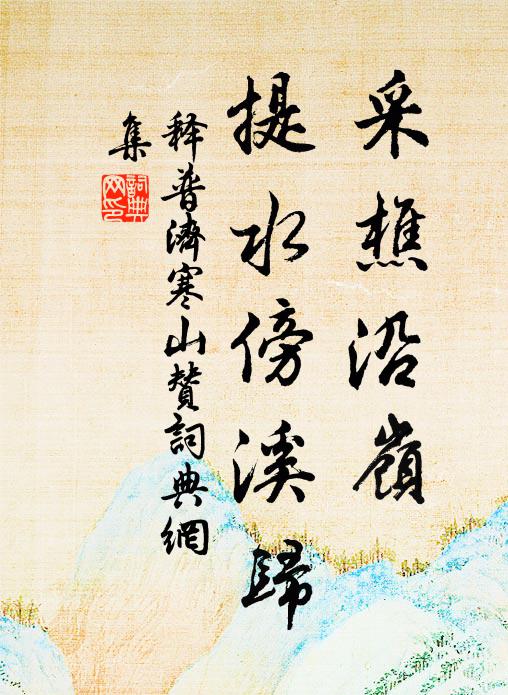 采樵沿嶺
提水傍溪歸
释普濟寒山賛詞典網
集
詞典
网印